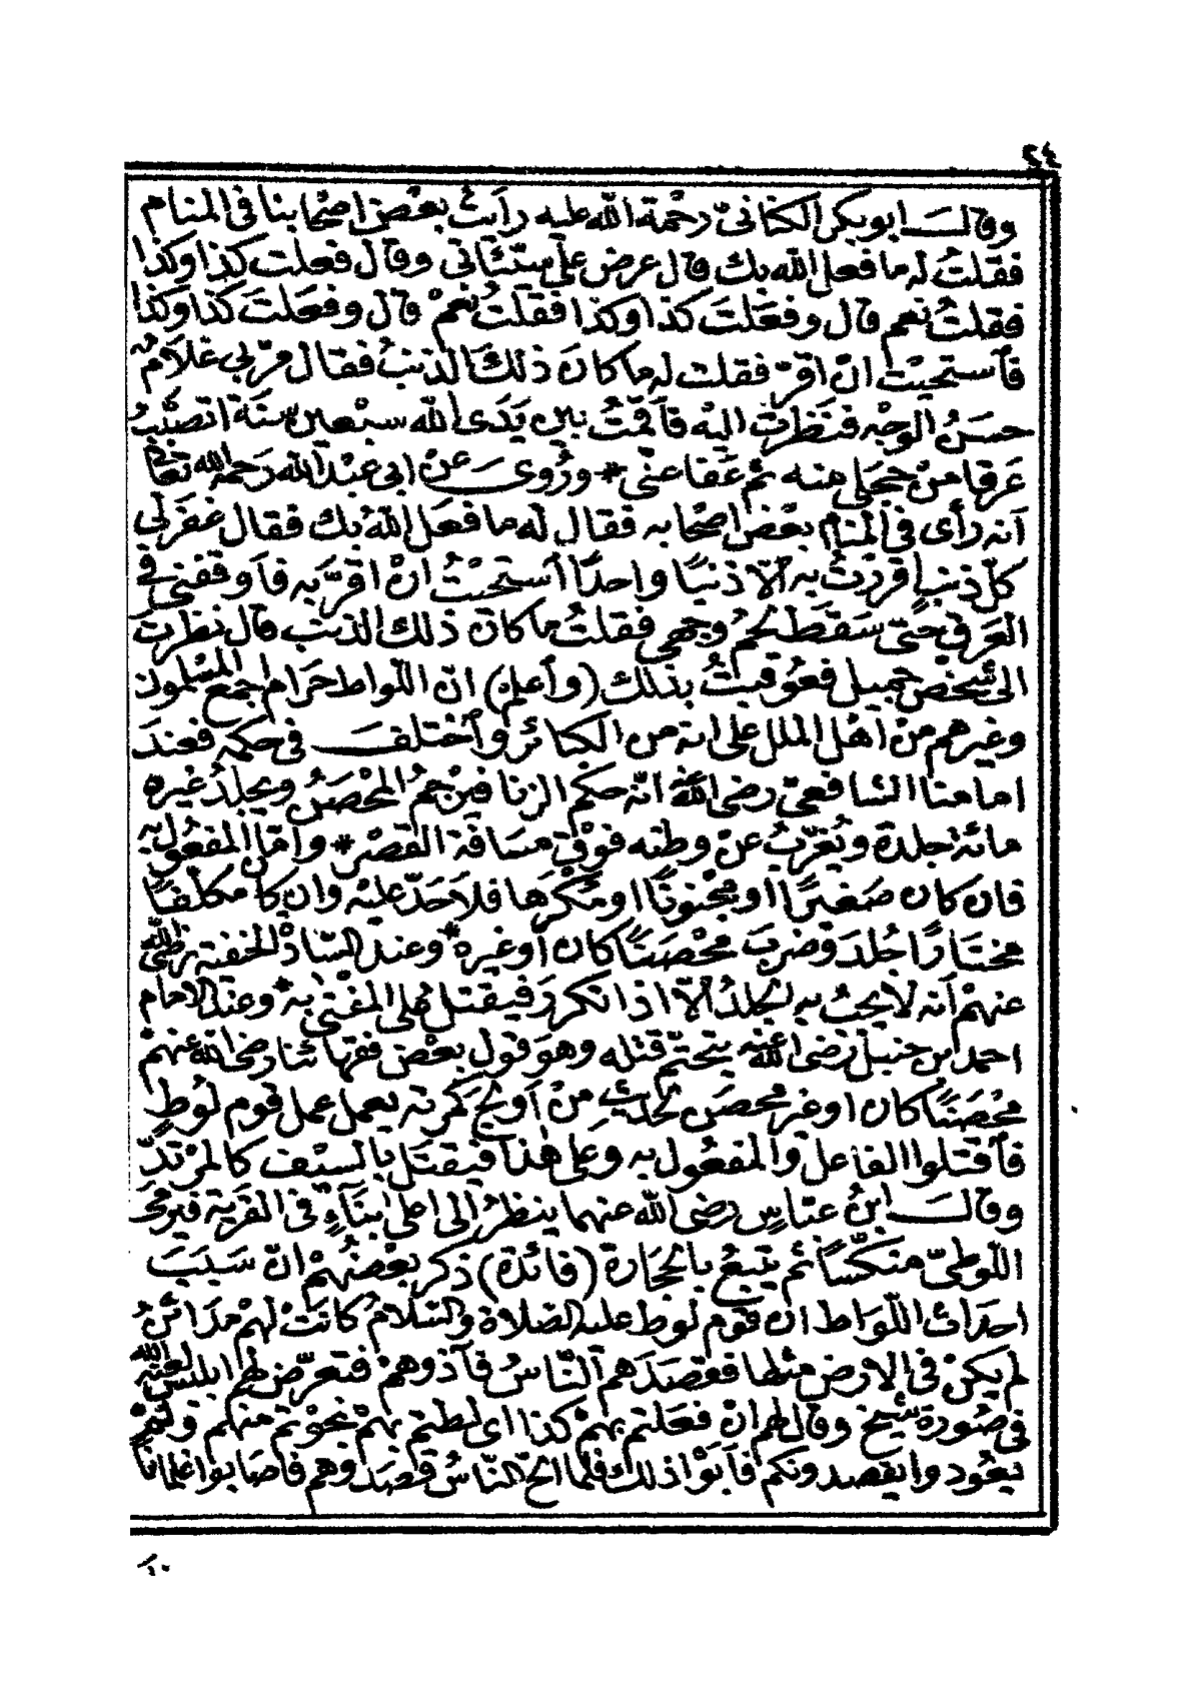 ٢٤
وقالـــ ابو بكر الكتانيّ رحْمة الله عليه رأيتُ بعْض اصْحابنا في المنام
فقلتُ له ما فعل الله بك قال عرض عليّ سيّئاتي وقال فعلت كذا وكذا
فقلتُ نعم قال وفعَلتَ كذا وكذا فقلتُ نعمْ قال وفعَلتَ كذا وكذا
فاستحيْت انْ اقرّ فقلت له ما كان ذلك الذنبُ فقال مرّ بي غلامٌ
حسَنُ الوجْه فنظرت اليْه فأقمْتُ بين يَدَي الله سبْعين سنَة اتصبّبُ
عَرقا منْ خجلي منه ثم عَفا عنّي * ورُويَ عنْ ابي عبْد الله رَحمه الله تعالى
أنه رأى في المنام بعْض اصْحابه فقال له ما فعَل الله بك فقال غفر لي
كلّ ذنب اقررْتُ به الّا ذنبًا واحدًا استحيْتُ انْ اقرّ به فأوقفني في
العَرق حتّى سَقَط لحْمُ وجْهي فقلتُ ما كان ذلك الذنب قال نظرت
الى شخْص جميل فعُوقبتُ بذلك (وأعلم) انّ اللّواط حَرام اجمع المسْلمون
وغيرهم منْ اهْل الملل على انه من الكبائر وأختلفـــ في حكمه فعندَ
امامنا الشافعيّ رضي الله عنه انّه حكم الزنا فيرْجمُ المحْصَنُ ويجلدُ غيره
مائة جلدة ويُغرّبُ عنْ وطنه فوْق مسَافة القصْر * وامّا المفعُول به
فان كان صَغيرًا او مجْنونًا او مُكْرها فلا حَدّ عليْه وان كا مكلّفًا
مختارًا جُلدَ وضربَ محْصَنًا كان أو غيره * وعند السّادْ الحنفية رضي الله
عنهمْ أنه لا يجبُ به الجلدُ الّا اذا تكررَ فيقتل على المفتى به * وعند الامام
احمد بن حنبل رضي الله عنه يتحتّم قتله وهو قول بعْض فقهائنا رضي الله عنهمْ
محْصَنًا كان او غيْر محصَن لحديْثِ منْ أوْ يجَكمرته يعمل عمل قوم لوُط
فأقتلوا الفاعل والمفعُول به وعلى هٰذا فيقتَل بالسيْف كالمرْتدّ
وقالـــ ابنُ عبّاسٍ رضي الله عنهما ينظرُ الى اعلى بناءٍ في القرْية فيرمى
اللّوطيّ منكّسًا ثم يتبعُ بالحجَارة (فائدة) ذكر بعْضهُمْ انّ سَبَبَ
احدَاث اللّواط ان قوْم لوط عليه الصّلاة والسّلام كانتْ لهمْ مدَائنُ
لم يكنْ في الارض مثلها فقصَدَهم النّاسُ فآذوهمْ فتعرّض لهم ابليس لعنه الله
في صُورة شيخ وقال لهم ان فعَلتم بهمْ كذا اي لُطتم بهمْ نجوْتم منهم ولمْ
يعُودوا يقصدونكم فأبَوْا ذلك فلمّا الحّ النّاسُ قصَدوهم فأصابوا غلمانا